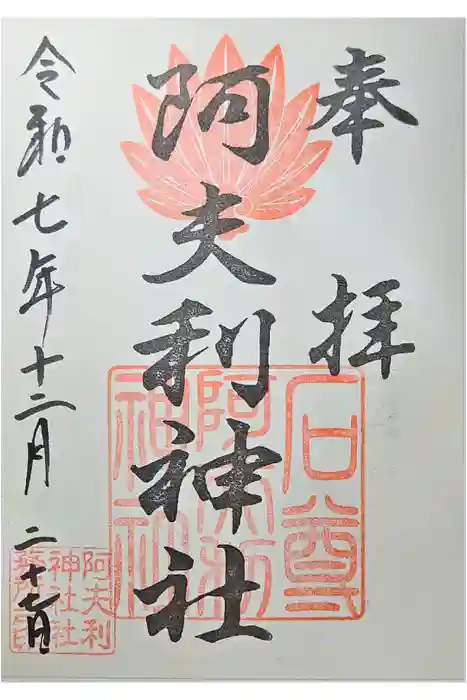 奉拝
石尊
阿夫利
神社
阿夫利神社
令和七年十二月二十七日
阿夫利
神社社